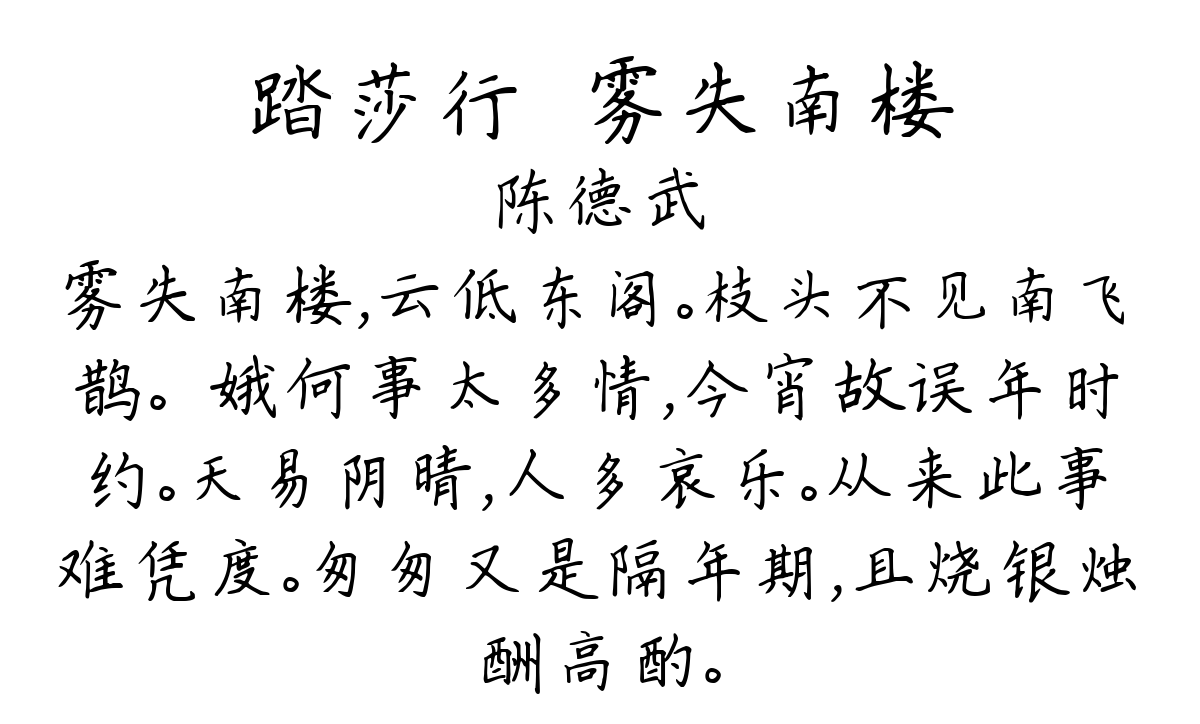 踏莎行 雾失南楼
陈德武
雾失南楼,云低东阁。枝头不见南飞
鹊。娥何事太多情,今宵故误年时
约。天易阴晴,人多哀乐。从来此事
难凭度。匆匆又是隔年期,且烧银烛
酬高酌。